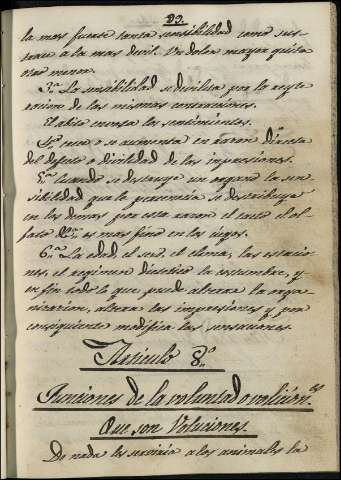 99.
la mas fuerte tanta sensibilidad como sus-
trae a la mas devil. Un dolor mayor quita
otro menor.
3.ª La sensibilidad se devilita por la reyte
racion de las mismas sensaciones.
El abito enerva los sentimientos.
4.ª esta se aumenta en razon directa
del defecto o devilidad de las impresiones.
5.ª cuando se destruye un organo la sen-
sibilidad que le pertenecia se distribuye
en los demas por esta razon el tacto el ol-
fato &.ª es mas fino en los ciegos.
6.ª La edad, el sexo, el clima, las estacio-
nes, el regimen dietetico la costumbre, y
en fin todo lo que puede alterar la orga-
nizacion, altera las impresiones y por
consiguiente modifica las sensaciones.
Articulo 8.º
Funciones de la voluntad o volicion.es
Que son Voliciones.
De nada les serviria a los animales la